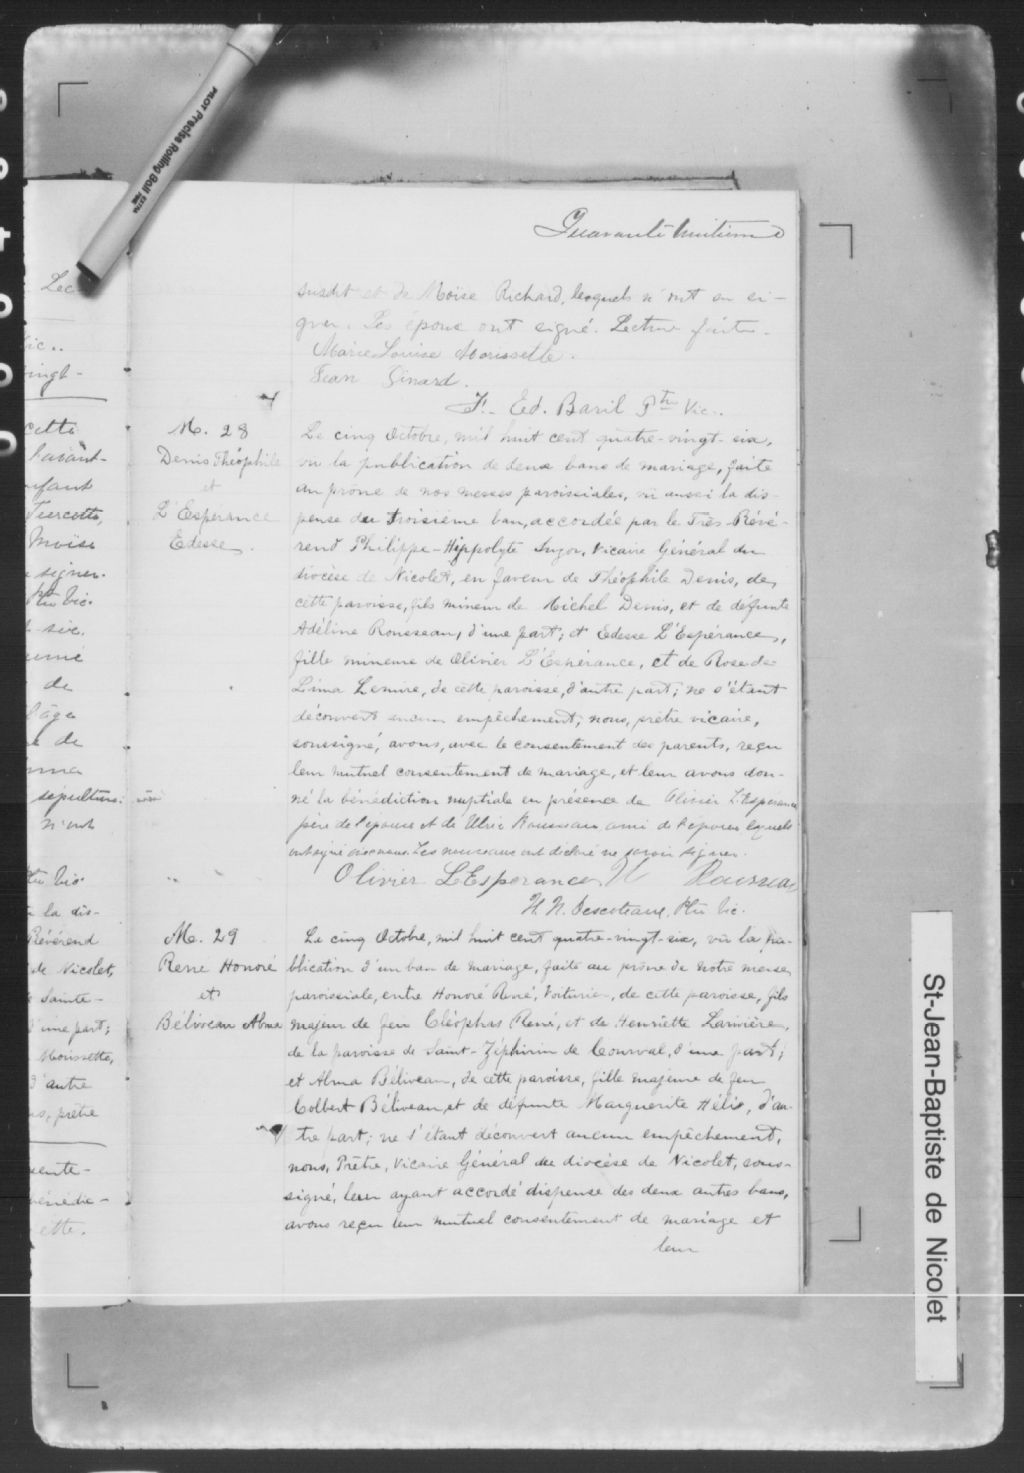 PILOT Precise Rolling Ball
Quarante huitième
susdit et de Moïse Richard, lesquels n'ont su si-
gner. Les époux ont signé. Lecture faite.
Marie Louise Morissette.
Jean Sinard.
F.- Ed. Baril Ptre Vic..
M. 28
Denis Théophile
et
L'Esperance
Edesse.
Le cinq Octobre, mil huit cent quatre-vingt-six,
vu la publication de deux bans de mariage, faite
au prône de nos messes paroissiales, vu aussi la dis-
pense du troisième ban, accordée par le Très-Révé-
rend Philippe-Hippolyte Suzor, Vicaire Général du
diocèse de Nicolet, en faveur de Théophile Denis, de
cette paroisse, fils mineur de Michel Denis, et de défunte
Adéline Rousseau, d'une part; et Edesse L'Espérance,
fille mineure de Olivier L'Espérance, et de Rose de
Lima Lemire, de cette paroisse, d'autre part; ne s'étant
découvert aucun empêchement, nous, prêtre vicaire,
soussigné, avons, avec le consentement des parents, reçu
leur mutuel consentement de mariage, et leur avons don-
né la bénédiction nuptiale en présence de Olivier L'Esperance
père de l'épouse et de Ulric Rousseau ami de l'époux lequels
ont signé avec nous. Les nouveaux ont déclaré ne savoir signer.
Olivier LEsperance U Rousseau
H. N. Descoteaux, Ptre Vic.
M. 29
René Honoré
et
Béliveau Alma
Le cinq Octobre, mil huit cent quatre-vingt-six, vu la pu-
blication d'un ban de mariage, faite au prône de notre messe
paroissiale, entre Honoré René, Voiturier, de cette paroisse, fils
majeur de feu Cléophas René, et de Henriette Larivière,
de la paroisse de Saint-Zéphirin de Courval, d'une part;
et Alma Béliveau, de cette paroisse, fille majeure de feu
Colbert Béliveau, et de défunte Marguerite Hélie, d'au-
tre part; ne s'étant découvert aucun empêchement,
nous, Prêtre, Vicaire Général du diocèse de Nicolet, sous-
signé, leur ayant accordé dispense des deux autres bans,
avons reçu leur mutuel consentement de mariage et
leur
Lec
vingt-
cette
Turcotte,
Moïse
signer.
Ptre Vic.
de
l'âge
de
sépulture:
n'ont
Ptre Vic
la dis-
Révérend
de Nicolet,
Sainte-
d'une part;
Morissette,
d'autre
prêtre
St-Jean-Baptiste de Nicolet